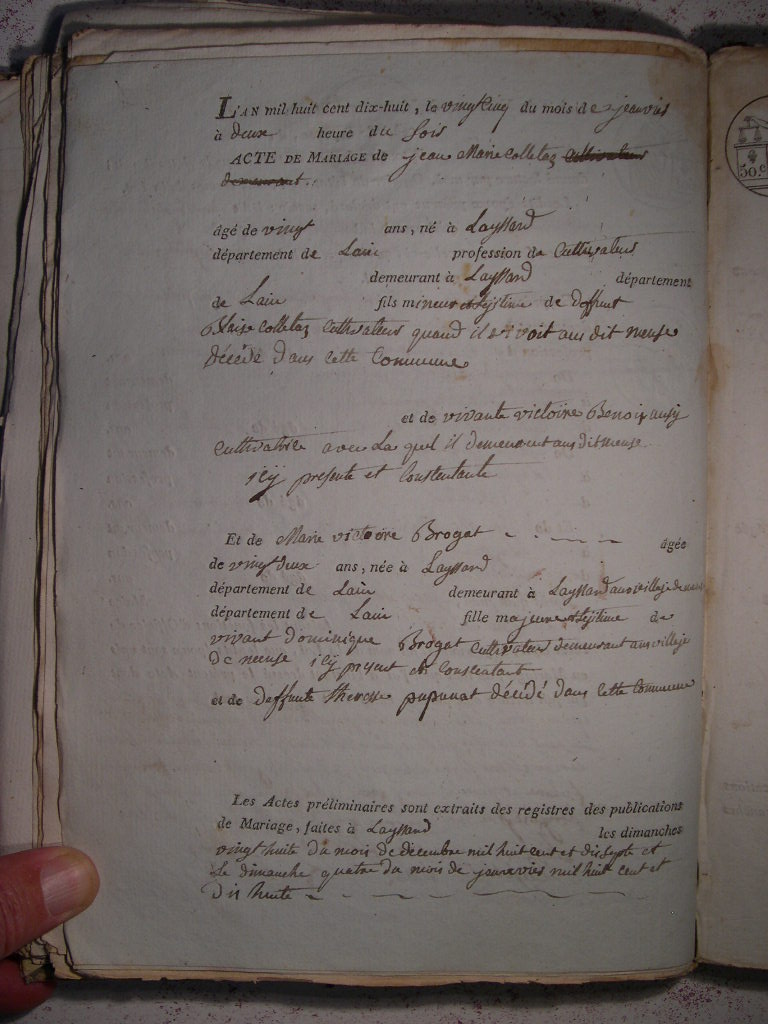 L'AN mil huit cent dix-huit, le vingt cinq du mois de jeanvies
à deux heure du soir
ACTE DE MARIAGE de jean Marie Colletaz Cultivateur
demeurant.
âgé de vingt ans, né à Layssard
département de Lain profession de Cultivateur
demeurant à Layssard département
de Lain fils mineur et lejitime de deffunt
Blaise Colletaz Cultivateur quand il vivoit au dit neuse
décédé dans cette Commune
et de vivante victoire Benoiz ausy
Cultivatrice avec la quel il demeurent au dit neuse
icy presente et Constentante
Et de Marie victoire Brogat âgée
de vingt deux ans, née à Layssard
département de Lain demeurant à Layssard au village de
département de Lain fille majeure et lejitime de
vivant dominique Brogat Cultivateur demeurant au village
de neuse icy present et Constentant
et de deffunte theresse pupunat décédé dans cette Commune
Les Actes préliminaires sont extraits des registres des publications
de Mariage, faites à Layssard les dimanches
vingt huite du mois de decembre mil huit cent et dis septe et
Le dimanche quatre du mois de jeanvies mil huit cent et
dis huite
50.c